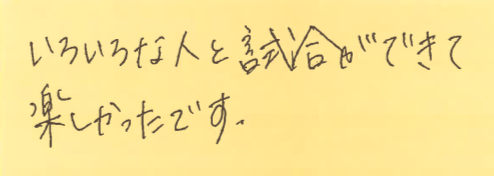 いろいろな人と試合ができて
楽しかったです.